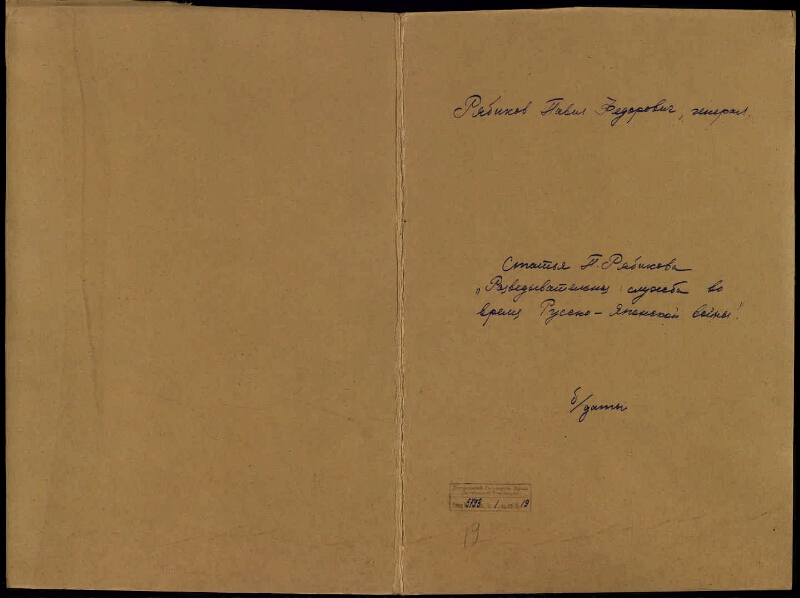 Рябиков Павел Федорович, генерал.
Статья П. Рябикова
„Разведывательная служба во
время Русско-Японской войны".
б/даты
1 19
19